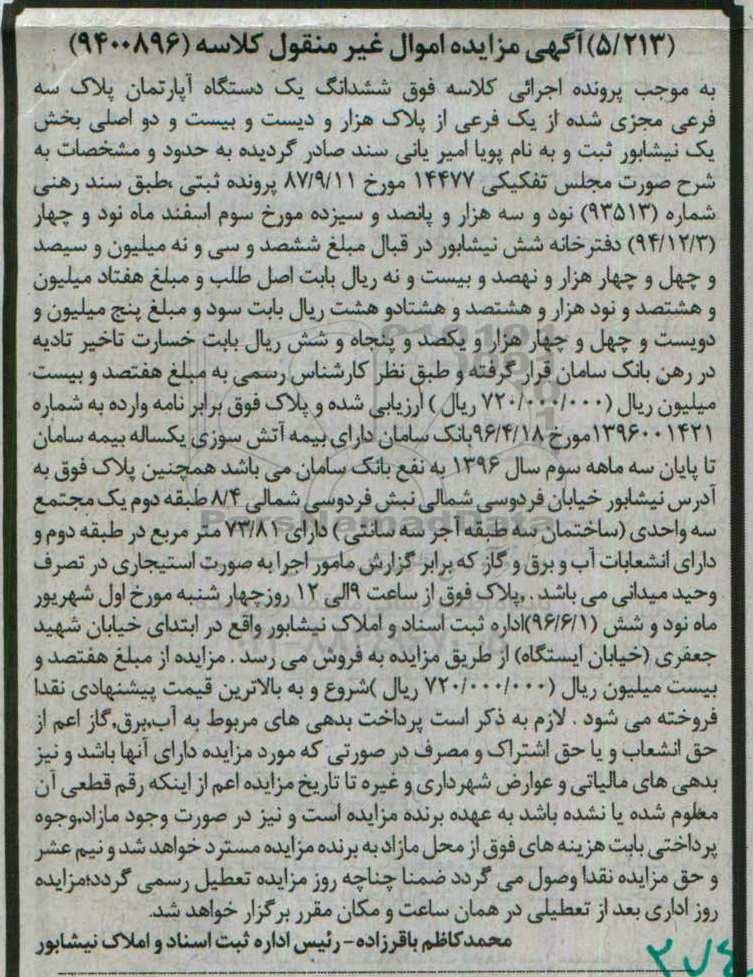 (۵/۲۱۳)آگهی مزایده اموال غیر منقول کلاسه (۹۴۰۰۸۹۶)
به موجب پرونده اجرائی کلاسه فوق ششدانگ یک دستگاه آپارتمان پلاک سه
فرعی مجزی شده از یک فرعی از پلاک هزار و دیست و بیست و دو اصلی بخش
یک نیشابور ثبت و به نام پویا امیر یانی سند صادر گردیده به حدود و مشخصات به
شرح صورت مجلس تفکیکی ۱۴۴۷۷ مورخ ۸۷/۹/۱۱ پرونده ثبتی ،طبق سند رهنی
شماره (۹۳۵۱۳) نود و سه هزار و پانصد و سیزده مورخ سوم اسفند ماه نود و چهار
(۹۴/۱۲/۳) دفترخانه شش نیشابور در قبال مبلغ ششصد و سی و نه میلیون و سیصد
و چهل و چهار هزار و نهصد و بیست و نه ریال بابت اصل طلب و مبلغ هفتاد میلیون
و هشتصد و نود هزار و هشتصد و هشتادو هشت ریال بابت سود و مبلغ پنج میلیون و
دویست و چهل و چهار هزار و یکصد و پنجاه و شش ریال بابت خسارت تاخیر تادیه
در رهن بانک سامان قرار گرفته و طبق نظر کارشناس رسمی به مبلغ هفتصد و بیست
میلیون ریال (۷۲۰/۰۰۰/۰۰۰ ریال ) ارزیابی شده و پلاک فوق برابر نامه وارده به شماره
۱۳۹۶۰۰۱۴۲۱مورخ ۹۶/۴/۱۸بانک سامان دارای بیمه آتش سوزی یکساله بیمه سامان
تا پایان سه ماهه سوم سال ۱۳۹۶ به نفع بانک سامان می باشد همچنین پلاک فوق به
آدرس نیشابور خیابان فردوسی شمالی نبش فردوسی شمالی ۸/۴ طبقه دوم یک مجتمع
سه واحدی (ساختمان سه طبقه آجر سه سانتی ) دارای ۷۳/۸۱ متر مربع در طبقه دوم و
دارای انشعابات آب و برق و گاز که برابر گزارش مامور اجرا به صورت استیجاری در تصرف
وحید میدانی می باشد . ,پلاک فوق از ساعت ۹الی ۱۲ روزچهار شنبه مورخ اول شهریور
ماه نود و شش (۹۶/۶/۱)اداره ثبت اسناد و املاک نیشابور واقع در ابتدای خیابان شهید
جعفری (خیابان ایستگاه) از طریق مزایده به فروش می رسد . مزایده از مبلغ هفتصد و
بیست میلیون ریال (۷۲۰/۰۰۰/۰۰۰ ریال )شروع و به بالاترین قیمت پیشنهادی نقدا
فروخته می شود . لازم به ذکر است پرداخت بدهی های مربوط به آب,برق,گاز اعم از
حق انشعاب و یا حق اشتراک و مصرف در صورتی که مورد مزایده دارای آنها باشد و نیز
بدهی های مالیاتی و عوارض شهرداری و غیره تا تاریخ مزایده اعم از اینکه رقم قطعی آن
معلوم شده یا نشده باشد به عهده برنده مزایده است و نیز در صورت وجود مازاد,وجوه
پرداختی بابت هزینه های فوق از محل مازاد به برنده مزایده مسترد خواهد شد و نیم عشر
و حق مزایده نقدا وصول می گردد ضمنا چناچه روز مزایده تعطیل رسمی گردد؛مزایده
روز اداری بعد از تعطیلی در همان ساعت و مکان مقرر برگزار خواهد شد.
محمدکاظم باقرزاده - رئیس اداره ثبت اسناد و املاک نیشابور
۲۷۴
ParsNamadData